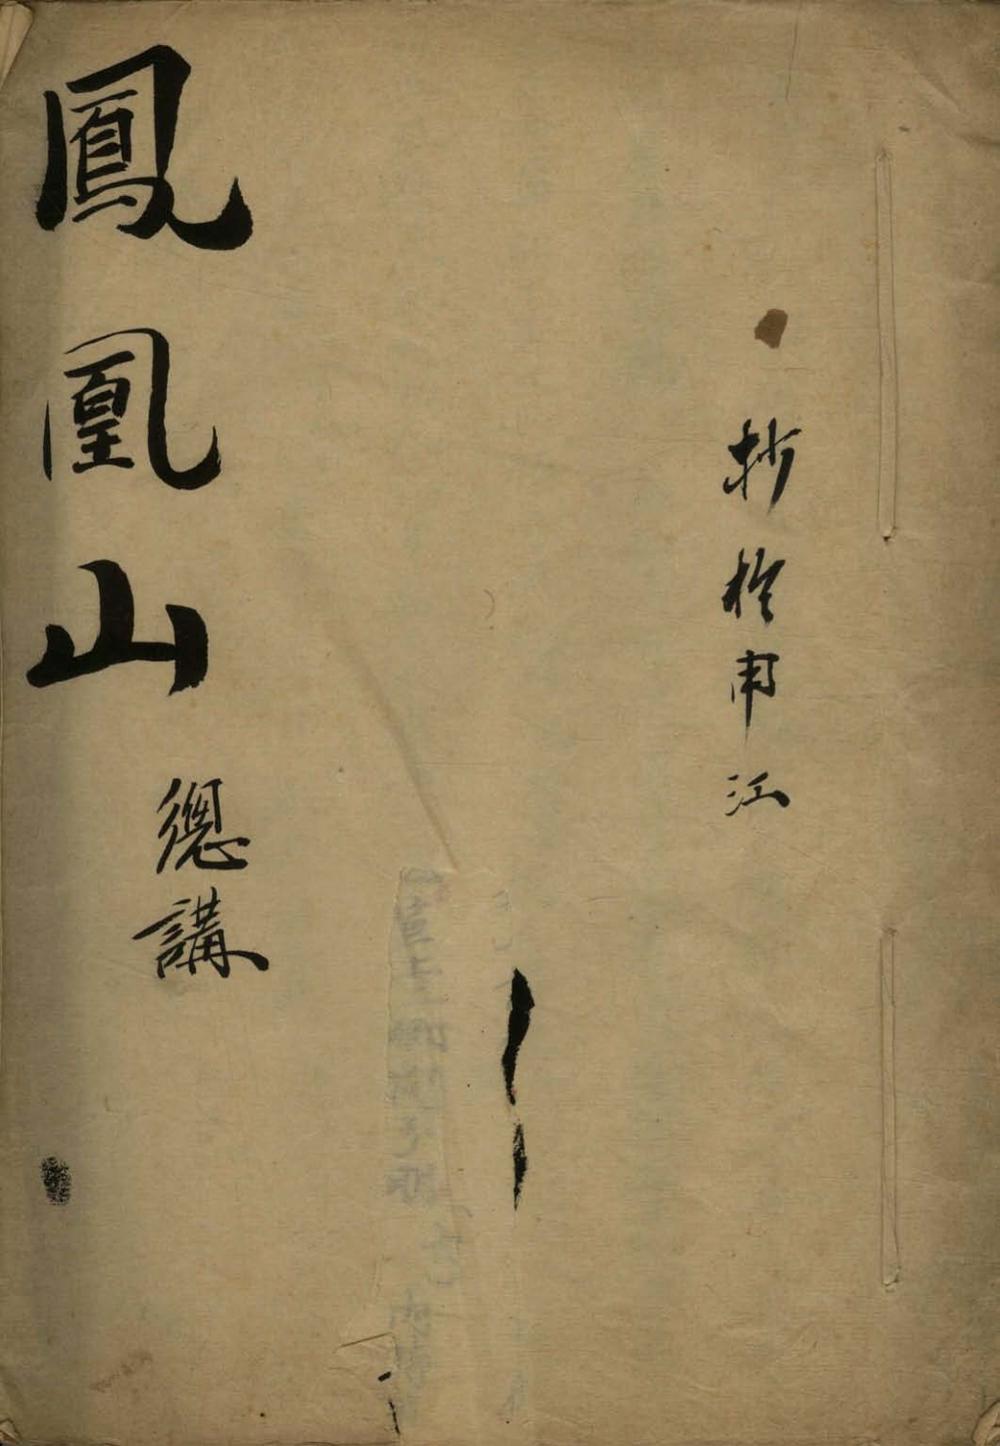 抄於申江
鳳凰山
總講